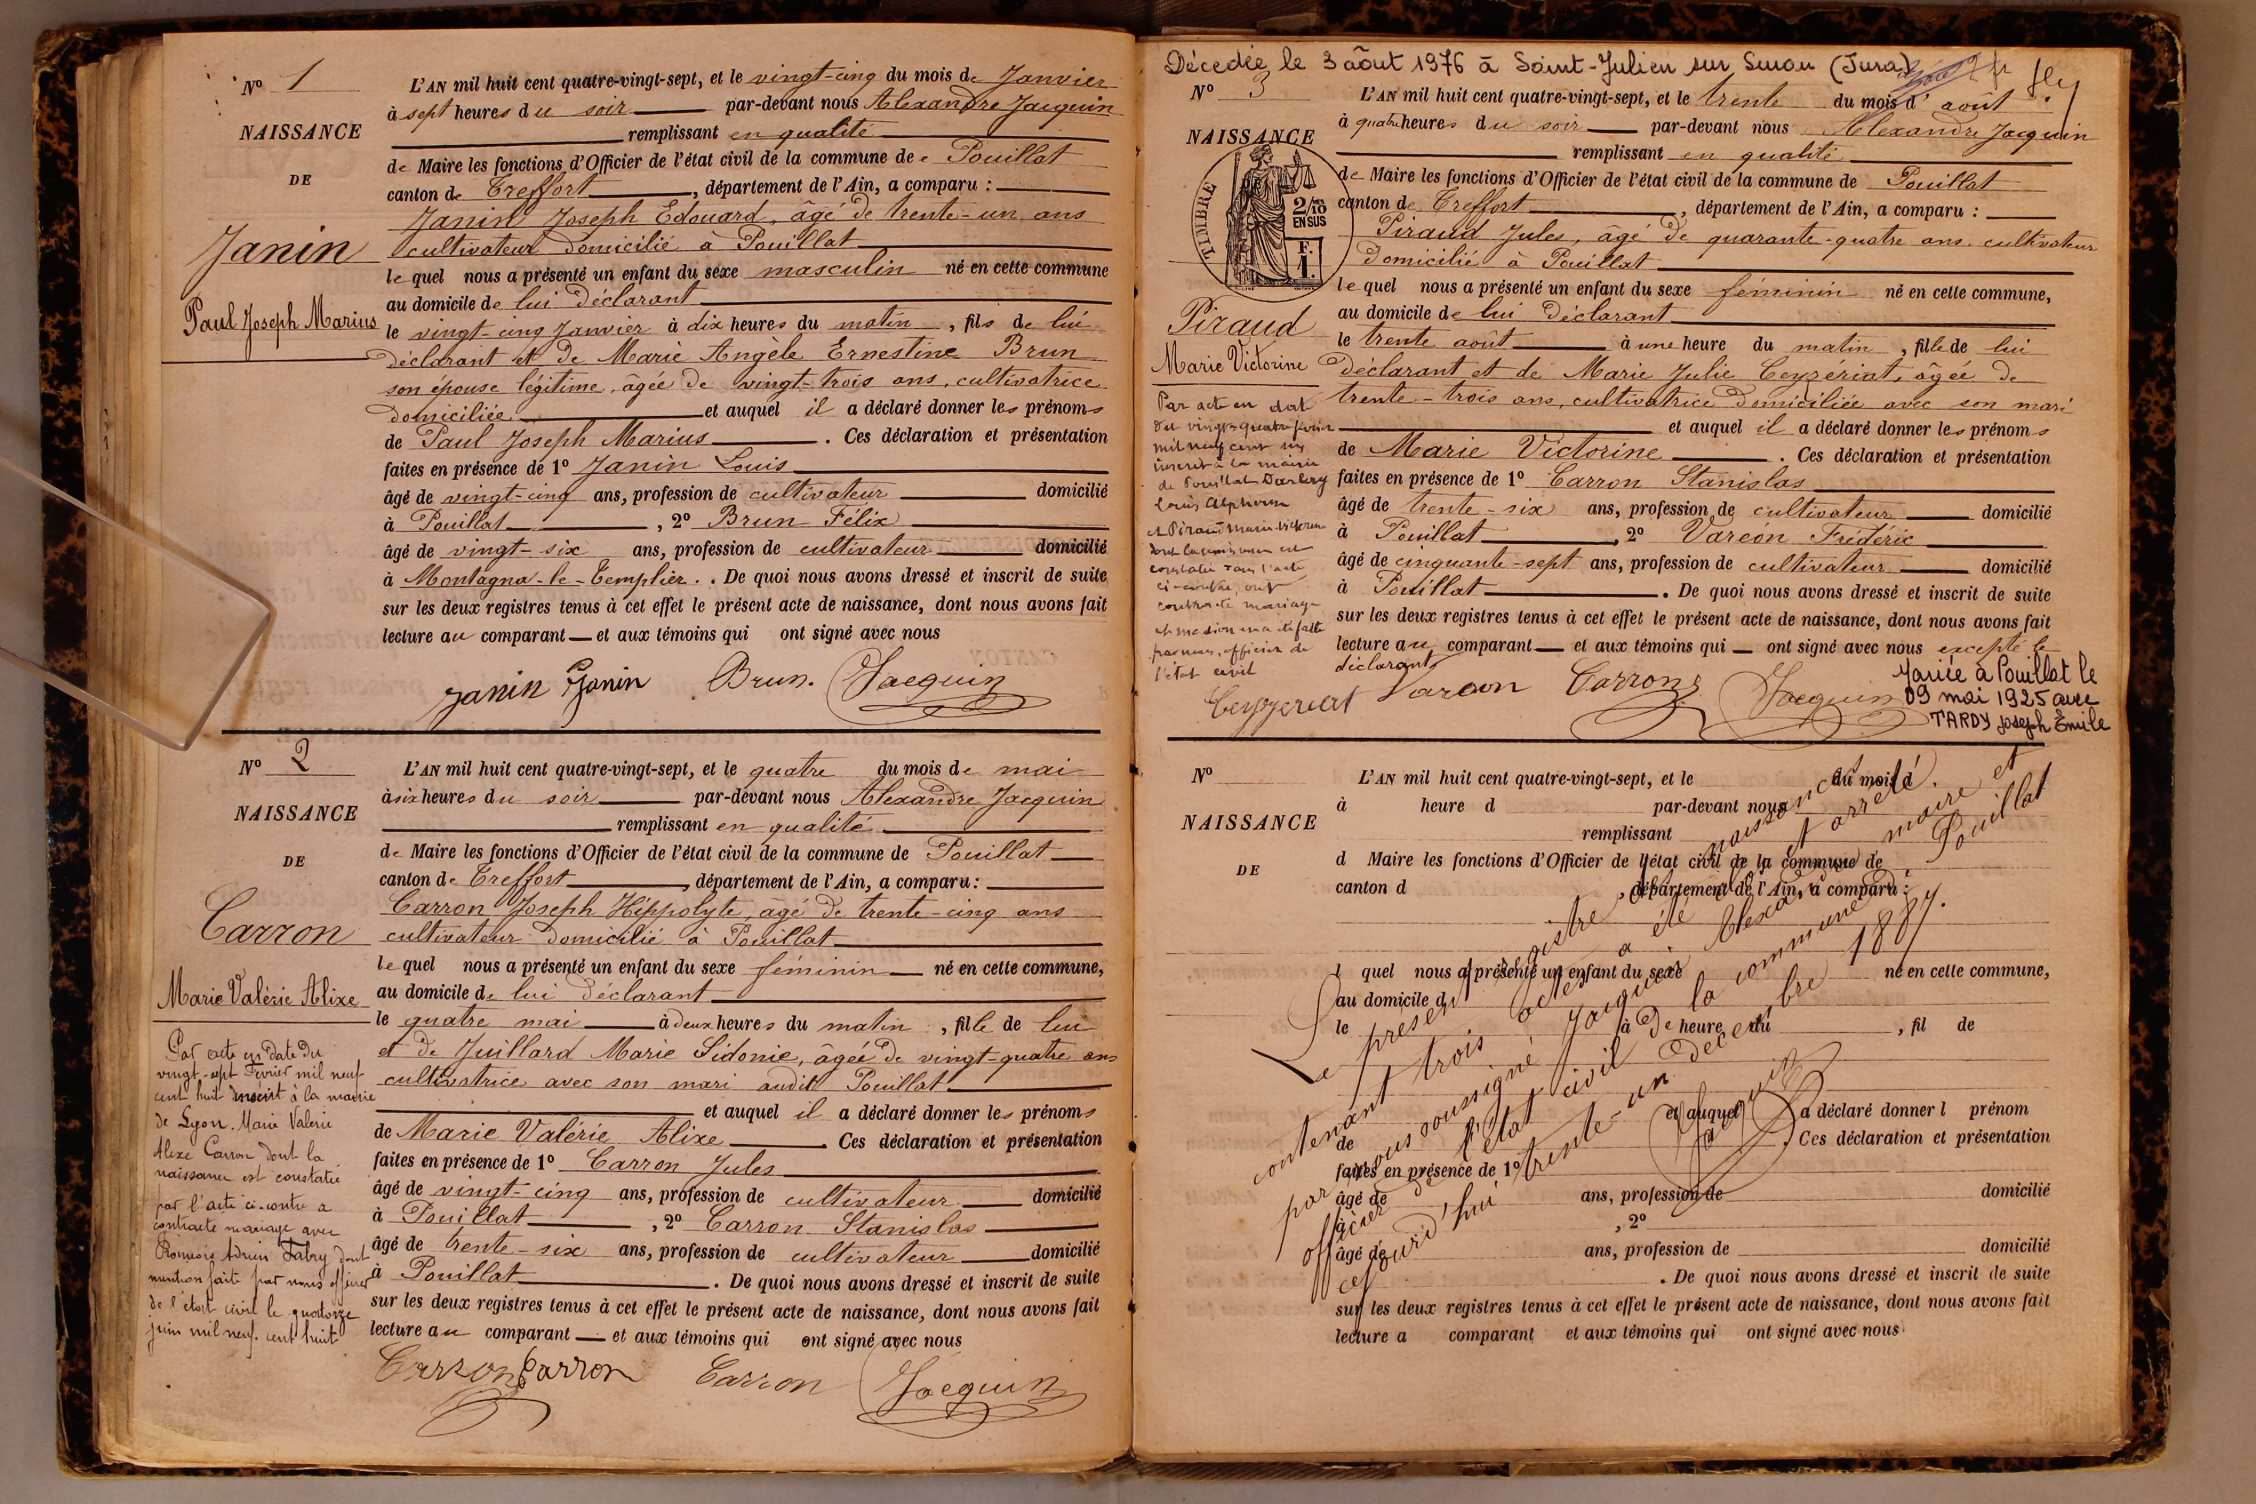 Nº 1
NAISSANCE
DE
Janin
Paul Joseph Marius
L'AN mil huit cent quatre-vingt-sept, et le vingt-cinq du mois de Janvier
à sept heures du soir par-devant nous Alexandre Jacquin
remplissant en qualité
de Maire les fonctions d'Officier de l'état civil de la commune de Pouillat
canton de Treffort, département de l'Ain, a comparu :
Janin Joseph Edouard, âgé de trente-un ans
cultivateur domicilié à Pouillat
lequel nous a présenté un enfant du sexe masculin né en cette commune
au domicile de lui déclarant
le vingt-cinq Janvier à dix heures du matin, fils de lui
déclarant et de Marie Angèle Ernestine Brun
son épouse légitime, âgée de vingt-trois ans, cultivatrice
domiciliée et auquel il a déclaré donner les prénoms
de Paul Joseph Marius. Ces déclaration et présentation
faites en présence de 1º Janin Louis
âgé de vingt-cinq ans, profession de cultivateur domicilié
à Pouillat, 2º Brun Félix
âgé de vingt-six ans, profession de cultivateur domicilié
à Montagna-le-Templier. De quoi nous avons dressé et inscrit de suite
sur les deux registres tenus à cet effet le présent acte de naissance, dont nous avons fait
lecture au comparant et aux témoins qui ont signé avec nous
Janin Janin Brun. Jacquin
Nº 2
NAISSANCE
DE
Carron
Marie Valérie Alixe
Par acte en date du
vingt-sept Février mil neuf
cent huit inscrit à la mairie
de Lyon. Marie Valérie
Alixe Carron dont la
naissance est constatée
par l'acte ci-contre a
contracté mariage avec
Adrien Fabry dont
mention faite par nous officier
de l'état civil le quatorze
juin mil neuf cent huit
L'AN mil huit cent quatre-vingt-sept, et le quatre du mois de mai
à six heures du soir par-devant nous Alexandre Jacquin
remplissant en qualité
de Maire les fonctions d'Officier de l'état civil de la commune de Pouillat
canton de Treffort, département de l'Ain, a comparu :
Carron Joseph Hippolyte, âgé de trente-cinq ans
cultivateur domicilié à Pouillat
lequel nous a présenté un enfant du sexe féminin né en cette commune,
au domicile de lui déclarant
le quatre mai à deux heures du matin, fille de lui
et de Juillard Marie Sidonie, âgée de vingt-quatre ans
cultivatrice avec son mari audit Pouillat
et auquel il a déclaré donner les prénoms
de Marie Valérie Alixe Ces déclaration et présentation
faites en présence de 1º Carron Jules
âgé de vingt-cinq ans, profession de cultivateur domicilié
à Pouillat, 2º Carron Stanislas
âgé de trente-six ans, profession de cultivateur domicilié
à Pouillat. De quoi nous avons dressé et inscrit de suite
sur les deux registres tenus à cet effet le présent acte de naissance, dont nous avons fait
lecture au comparant et aux témoins qui ont signé avec nous
Carron Carron Carron Jacquin
Décédée le 3 août 1976 à Saint-Julien sur Suran (Jura)
Nº 3
NAISSANCE
TIMBRE
2/10 EN SUS
F. 1.
Piraud
Marie Victorine
Par acte en date
du vingt-quatre
mil neuf cent six
inscrit à la mairie
de Pouillat Darlay
Louis Alphonse
et Piraud Marie-Victorine
dont la naissance est
constatée dans l'acte
ci-contre, ont
contracté mariage
et mention en a été faite
par nous, officier de
l'état civil
L'AN mil huit cent quatre-vingt-sept, et le trente du mois d'août
à quatre heures du soir par-devant nous Alexandre Jacquin
remplissant en qualité
de Maire les fonctions d'Officier de l'état civil de la commune de Pouillat
canton de Treffort, département de l'Ain, a comparu :
Piraud Jules, âgé de quarante-quatre ans cultivateur
domicilié à Pouillat
lequel nous a présenté un enfant du sexe féminin né en cette commune,
au domicile de lui déclarant
le trente août à une heure du matin, fille de lui
déclarant et de Marie Julie Ceyzériat, âgée de
trente-trois ans, cultivatrice domiciliée avec son mari
et auquel il a déclaré donner les prénoms
de Marie Victorine. Ces déclaration et présentation
faites en présence de 1º Carron Stanislas
âgé de trente-six ans, profession de cultivateur domicilié
à Pouillat, 2º Varéon Frédéric
âgé de cinquante-sept ans, profession de cultivateur domicilié
à Pouillat. De quoi nous avons dressé et inscrit de suite
sur les deux registres tenus à cet effet le présent acte de naissance, dont nous avons fait
lecture au comparant et aux témoins qui ont signé avec nous excepté le
déclarant
Ceyzeriat Vareon Carron Jacquin
Mariée à Pouillat le
09 mai 1925 avec
TARDY Joseph Emile
Nº
NAISSANCE
DE
L'AN mil huit cent quatre-vingt-sept, et le du mois d
à heure d par-devant nous
remplissant
d Maire les fonctions d'Officier de l'état civil de la commune de
canton d, département de l'Ain, a comparu :
l quel nous a présenté un enfant du sexe né en cette commune,
au domicile d
le à heure du, fil de
et auquel a déclaré donner l prénom
de. Ces déclaration et présentation
faites en présence de 1º
âgé de ans, profession de domicilié
à, 2º
âgé de ans, profession de domicilié
à. De quoi nous avons dressé et inscrit de suite
sur les deux registres tenus à cet effet le présent acte de naissance, dont nous avons fait
lecture a comparant et aux témoins qui ont signé avec nous
Le présent registre des naissances
contenant trois actes a été clos et arrêté
par nous soussigné Jacquin Alexandre maire et
officier de l'état civil de la commune de Pouillat
cejourd'hui trente-un décembre 1887.
Jacquin